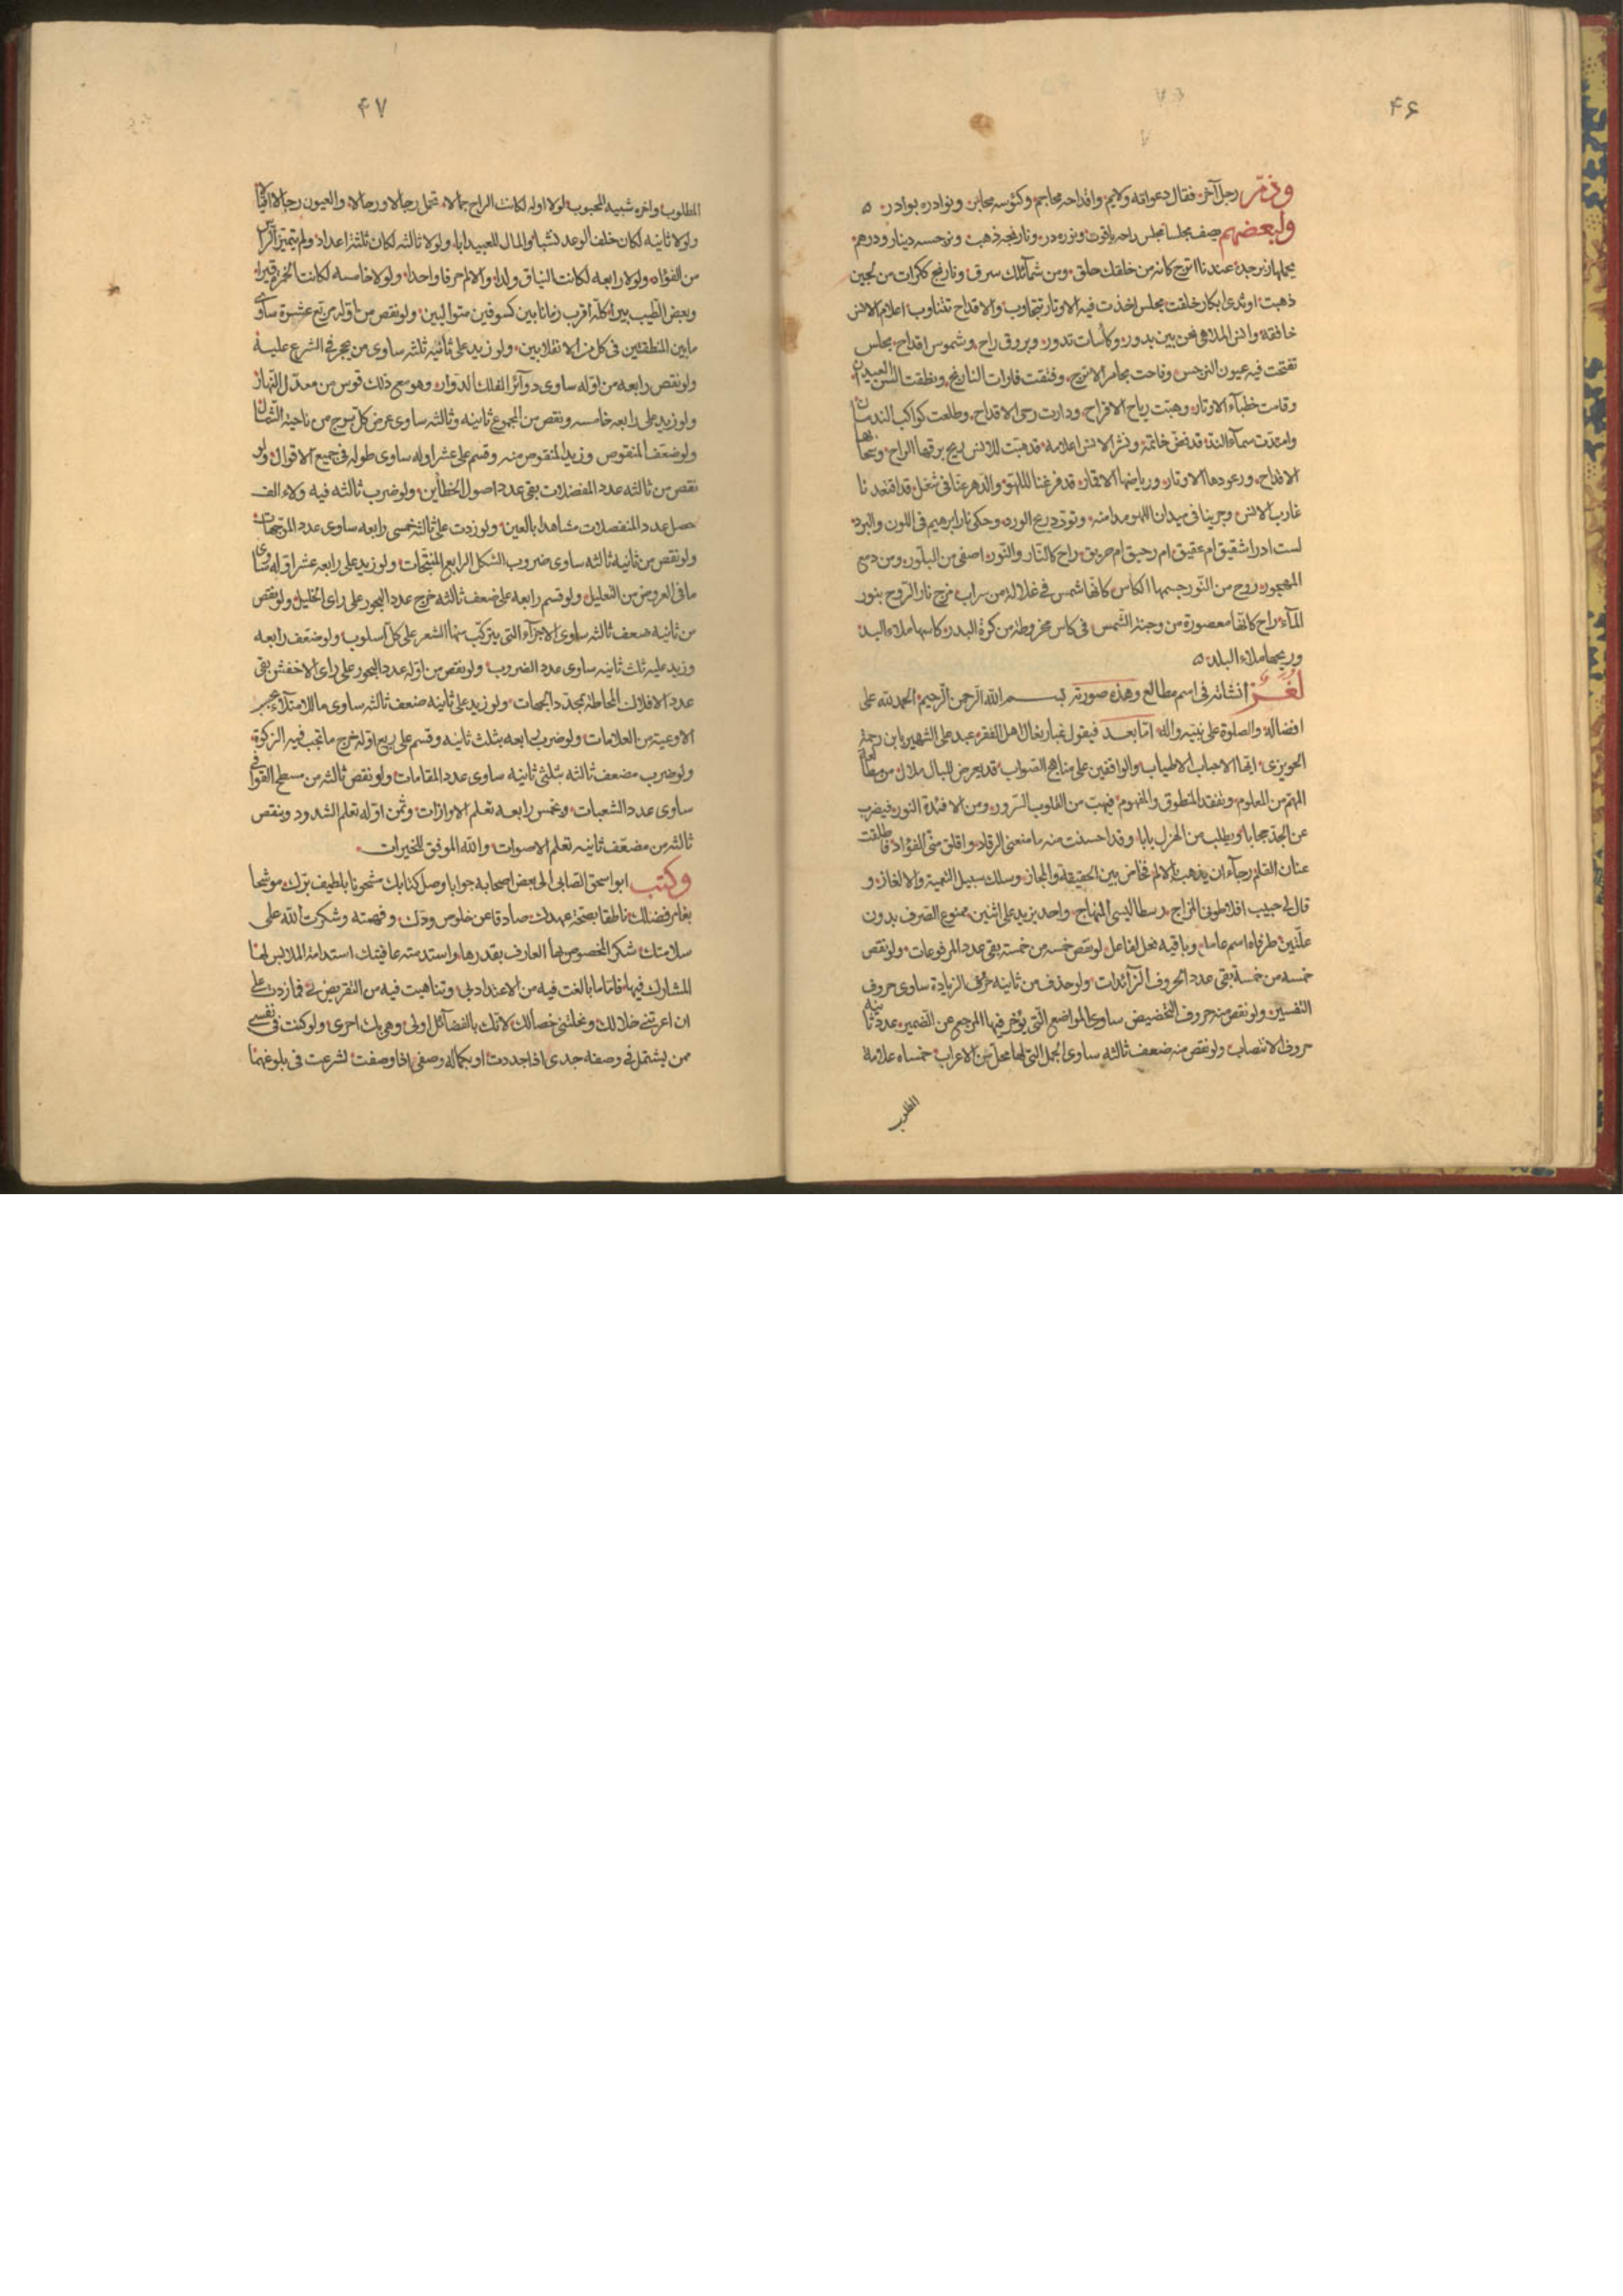 ۴۶
وذمّ رجل آخر فقال دعواته ولايم واقداحه محاجم وكؤسه محابر ونوادره بوادر ه
ولبعضهم يصف مجلسا مجلس راحه ياقوت ونوره در ونارنجه ذهب ونرجسه دينار ودرهم
يحملها زبرجد عندنا اترج كانه من خلقك خلق ومن شمائلك سرق ونارنج ككرات من لجين
ذهبت او ثدى ابكار خلقت مجلس اخذت فيه الاوتار تتجاوب والاقداح تتناوب اعلام الانس
خافقة والسن الملاهى نحن بين بدور وكأسات تدور وبروق راح وشموس اقداح مجلس
تفتحت فيه عيون النرجس وفاحت مجامر الاترج وفتقت فارات النارنج ونطقت السن العيدان
وقامت خطباء الاوتار وهبت رياح الاقراح ودارت رحى الاقداح وطلعت كواكب الندمان
وامتدت سماء الند قد فض خاتمه ونشر الانس اعلامه قد هبت للانس ريح برقها الراح وسحابها
الاقداح ورعودها الاوتار ورياضها الاقمار قد فرغنا للهو والدهر عنا فى شغل قد اقتعدنا
غارب الانس وجرينا فى ميدان اللهو مدامه وتورد ريح الورد وحكى نار ابرهيم فى اللون والبرد
لست ادر اشقيق ام عقيق ام رحيق ام حريق راح كالنار والنور اصفى من البلور ومن دمع
المهجور روح من النور جسمها الكأس كانها شمس فى غلالة من سراب مزج نار الروح بنور
الماء راح كانها معصورة من وجنة الشمس فى كاس مخروطة من كرة البدر كاسها ملاء اليد
وريحها ملاء البلد ه
لغز انشاته فى اسم مطالع وهذه صورته بسم الله الرحمن الرحيم الحمد لله على
افضاله والصلوة على نبيه واله اما بعد فيقول غبار نعال اهل الفقر عبد على الشهير بابن رحمة
الحويزى ايها الاحباب الاطياب والواقفين على مناهج الصواب قد يعرض للبال ملال من مطالعة
المهم من المعلوم وتفقد المنطوق والمفهوم فيهب من القلوب السرور ومن الافئدة النور فيضرب
عن الجد حجابا ويطلب من الهزل بابا وقد احسست منه ما منعنى الرقاد واقلق منى الفؤاد فاطلقت
عنان القلم رجاء ان يذهب الالم فخاض بين الحقيقة والمجاز وسلك سبيل التعمية والالغاز و
قال لى حبيب افلاطونى المزاج رسطاليسى المنهاج واحد يزيد على اثنين ممنوع الصرف بدون
علتين طرفاه اسم عاما وباقيه فعل لفاعل لو نقص خمسه من خمسة بقى عدد المرفوعات ولو نقص
خمسه من خمسة بقى عدد الحروف الزائدات ولو حذف من ثانيه حرف الزيادة ساوى حروف
التفسير ولو نقص منه حروف التخضيض ساوى المواضع التى يؤخر فيها المرجع عن الضمير عدد ثانيه
حروف الانتصاب ولو نقص منه ضعف ثالثه ساوى الجمل التى لها محل من الاعراب خمساه علامة
الطلب
۴۷
المطلوب واخره شبيه المحبوب لولا اوله لكانت الراح جمالا تحمل رجالا ورحالا والعيون رجالا اقيالا
ولولا ثانيه لكان خلف الوعد نشبا والمال للعبيد ابا ولولا ثالثه لكان ثلثة اعداد ولم يتميز الرأس
من الفؤاد ولولا رابعه لكانت النياق ولدا والالام حرفا واحدا ولولا خامسه لكانت الخمر قيرا
وبعض الطيب بيرا كله اقرب زمانا بين كسوفين متواليين ولو نقص من اوله مربع عشرة ساوى
ما بين المنطقتين فى كل من الانقلابين ولو زيد على ثانيه ثلثه ساوى من يحجر فى الشرع عليه
ولو نقص رابعه من اوله ساوى دوائر الفلك الدوار وهو مع ذلك قوس من معدل النهار
ولو زيد على رابعه خامسه ونقص من المجموع ثانيه وثالثه ساوى عرض كل برج من ناحية الشمال
ولو ضعف المنقوص وزيد المنقوص منه وقسم على عشر اوله ساوى طوله فى جميع الاقوال ولو
نقص من ثالثه عدد المفضلات بقى عدد اصول الخطأين ولو ضرب ثالثه فيه ولاء الف
حصل عدد المنفصلات مشاهدا بالعين ولو زدت على ثالثه خمسى رابعه ساوى عدد المرجهات
ولو نقص من ثانيه ثالثه ساوى ضروب الشكل الرابع المنتجات ولو زيد على رابعه عشر اوله ساوى
ما فى العروض من التعليل ولو قسم رابعه على ضعف ثالثه خرج عدد البحور على راى الخليل ولو نقص
من ثانيه ضعف ثالثه ساوى الاجزاء التى يتركب منها الشعر على كل اسلوب ولو ضعف رابعه
وزيد عليه ثلث ثانيه ساوى عدد الضروب ولو نقص من اوله عدد البحور على راى الاخفش بقى
عدد الافلاك المحاطة بمحدد الجهات ولو زيد على ثانيه ضعف ثالثه ساوى ما للامتلاء بحسب
الاوعية من العلامات ولو ضرب رابعه بثلث ثانيه وقسم على ربع اوله خرج ما تجب فيه الزكوة
ولو ضرب مضعف ثالثه بثلثى ثانيه ساوى عدد المقامات ولو نقص ثالثه من مسطح القوافى
ساوى عدد الشعبات وبخمس رابعه تعلم الاوازات وثمن اوله تعلم الشدود وبنقص
ثالثه من مضعف ثانيه تعلم الاصوات والله الموفق للخيرات
وكتب ابو اسحق الصابى الى بعض اصحابه جوابا وصل كتابك مشحونا بلطيف برك موشحا
بغامر فضلك ناطقا بصحة عهدك صادقا عن خلوص ودك وفهمته وشكرت الله على
سلامتك شكر المخصوص بها العارف بقدرها واستدمته عافيتك استدامة الملابس لها
المشارك فيها فاما ما بالغت فيه من الاعتداد بى وتناهيت فيه من التقريض لى فما زدت على
ان اعرتنى خلالك ونحلتنى خصالك لانك بالفضائل اولى وهى بك احرى ولو كنت فى نفسى
ممن يشتمل فى وصفه جدى اذا جددت او بكماله وصفى اذا وصفت لشرعت فى بلوغهما